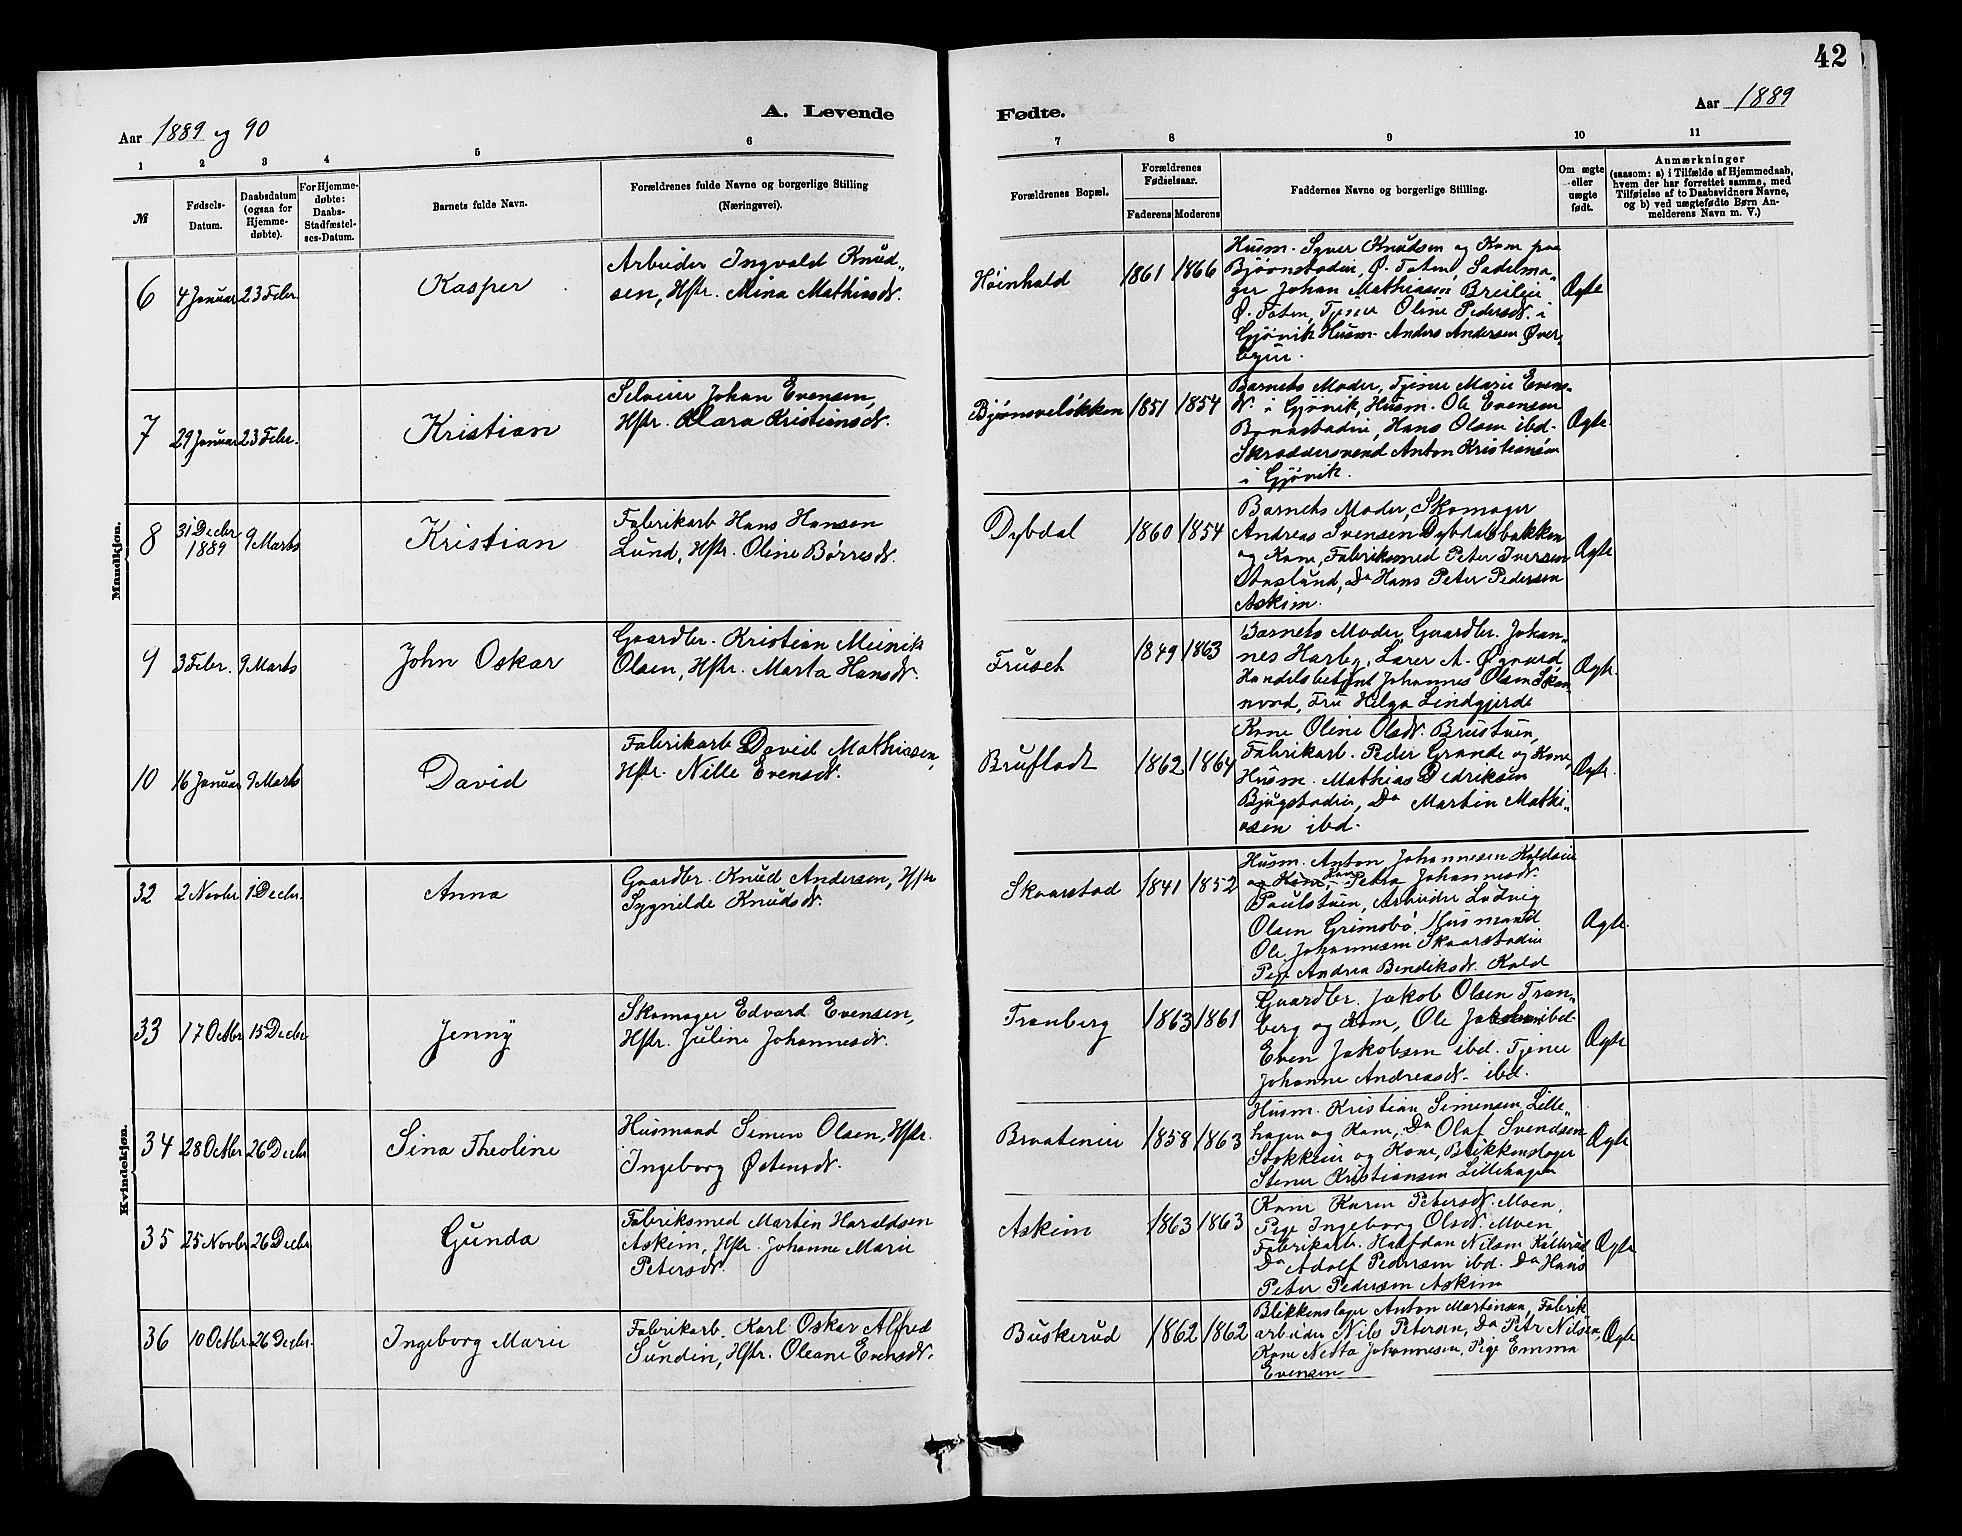 42
Aar 1889 og 90
A. Levende
Fødte.
Aar 1889
1 2 3 4 5 6 7 8 9 10 11
№
Fødsels-
Datum.
Daabsdatum
(ogsaa for
Hjemme-
døbte).
For Hjemme-
døbte:
Daabs-
Stadfæstel-
ses-Datum.
Barnets fulde Navn.
Forældrenes fulde Navne og borgerlige Stilling
(Næringsvei).
Forældrenes Bopæl.
Forældrenes
Fødselsaar.
Faderens Moderens
Faddernes Navne og borgerlige Stilling.
Om ægte
eller
uægte
født.
Anmærkninger
(saasom: a) i Tilfælde af Hjemmedaab,
hvem der har forrettet samme, med
Tilføielse af to Daabsvidners Navne,
og b) ved uægtefødte Børn An-
melderens Navn m. V.)
Mandkjøn.
6 4 Januar 23 Febr. Kasper
Arbeider Ingvald Knud„
sen, Hstr. Mina Mathisdr.
Høinhald 1861 1866
Husm. Syver Knudsen og Kone paa
Bjørnstadeie, Ø. Toten, Sadelma„
ger Johan Mathiasen Breileie
Ø. Toten, Tjener Oline Pedersdr. i
Gjøvik Husm. Anders Andersen Øver„
byeie.
Ægte
7 29 Januar 23 Febr. Kristian
Selveier Johan Evensen,
Hstr. Klara Kristiansdr.
Bjørnsveløkken 1851 1854
Barnets Moder, Tjener Marie Evens„
dr. i Gjøvik, Husm. Ole Evensen
Hans Olsen ibd.
Skræddersvend Anton Kristiansen
i Gjøvik.
Ægte.
8 31 Decbr 1889 9 Marts Kristian
Fabrikarb Hans Hansen
Lund, Hstr. Oline Børresdr.
Dybdal 1860 1854
Barnets Moder, Skomager
Andreas Svensen Dybdalsbakken
og Kone, Fabriksmed Peter Iversen
Aaslund, Do Hans Peter Pedersen
Askim.
Ægte
9 3 Febr. 9 Marts John Oskar
Gaardbr. Kristian Meinik
Olsen, Hstr. Marta Hansdr.
Fruset 1849 1863
Barnets Moder, Gaardbr. Johan„
nes Harby, Lærer A. Øgaard,
Handelsbetjent Johannes Olsen Skon„
nord, Fru Helga Lindgjerde
Ægte.
10 16 Januar 9 Marts David
Fabrikarb David Mathiasen,
Hstr. Nille Evensdr.
Brufladt 1862 1864
Kone Oline Olsdr. Brustuen,
Fabrikarb. Peder Grande og Kone,
Husm. Mathias Didriksen
Bjugstadeie, Do Martin Mathi„
asen ibd.
Ægte.
Kvindekjøn.
32 2 Novbr 1 Decbr. Anna
Gaardbr. Knud Andersen, Hstr
Sygnilde Knudsdr.
Skaarstad 1841 1852
Husm. Anton Johannesen Koldseie
og Kone, Kone Petra Johannesdr.
Paulstuen, Arbeider Ludvig
Olsen Grimsbø, Husmand
Ole Johannesen Skaarstadeie
Pige Andrea Bendiksdr. Kold
Ægte.
33 17 Octbr 15 Decbr Jenny
Skomager Edvard Evensen,
Hstr. Juline Johannesdr.
Tranberg 1863 1861
Gaardbr. Jakob Olsen Tran„
berg og Kone, Ole Jakobsen ibd.
Even Jakobsen ibd. Tjener
Johanne Andreasdr. ibd.
Ægte
34 28 Octbr 26 Decbr Sina Theoline
Husmand Simen Olsen, Hstr.
Ingeborg Østensdr.
Braateneie 1858 1863
Husm. Kristian Simensen Lille„
hagen og Kone, Do Olaf Svendsen
Stokkeie og Kone, Blikkenslager
Stener Kristiansen Lillehagen
Ægte
35 25 Novbr 26 Decbr Gunda
Fabriksmed Martin Haraldsen
Askim, Hstr. Johanne Marie
Petersdr.
Askim 1863 1863
Kone Karen Petersdr. Moen,
Pige Ingeborg Olsdr. Moen
Fabrikarb. Halfdan Nilsen Kallerud
Do Adolf Pedersen ibd. Do Hans
Peter Pedersen Askim
Ægte
36 10 Octbr 26 Decbr. Ingeborg Marie
Fabrikarb. Karl Oskar Alfred
Sundin, Hstr. Oleane Evensdr.
Buskerud 1862 1862
Blikkenslager Anton Martinsen, Fabrik
arbeider Nils Petersen, Do Petr Nilsen
Kone Netta Johannesen, Pige Emma
Evensen
Ægte